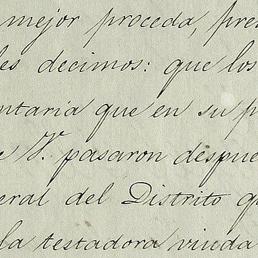 mejor proceda, pre
es decimos: que los
ntaria que en su p
e V. pasaron despue
eral del Distrito q
la testadora viuda